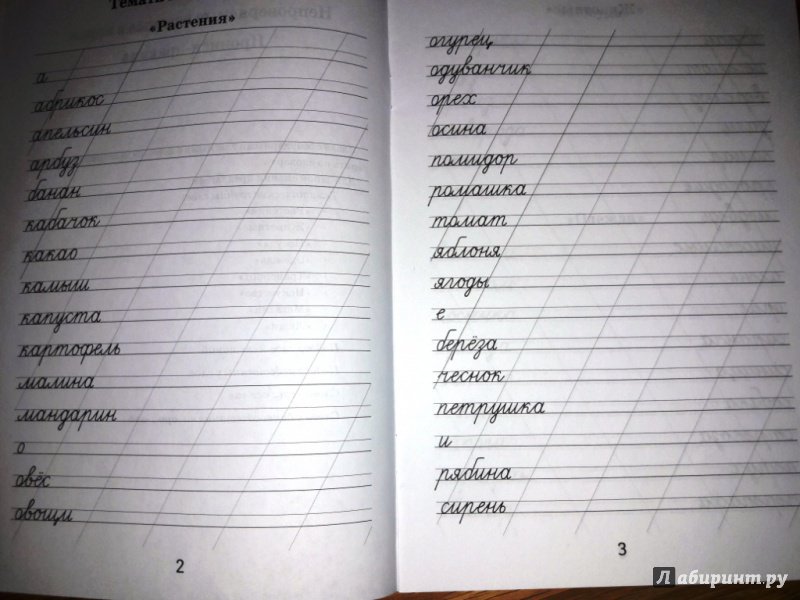 «Растения»
а
абрикос
апельсин
арбуз
банан
кабачок
какао
камыш
капуста
картофель
малина
мандарин
о
овёс
овощи
2
огурец
одуванчик
орех
осина
помидор
ромашка
томат
яблоня
ягоды
е
берёза
чеснок
петрушка
и
рябина
сирень
3
Лабиринт.ру